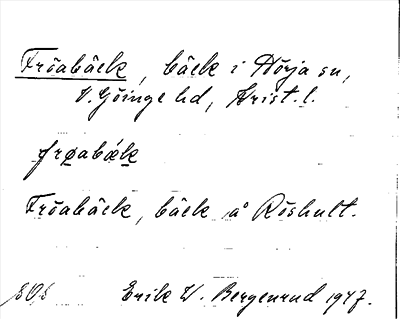 Fröabäck, bäck i Hörja sn,
V. Göinge hd, Krist. l.
frøabæ̀k
Fröabäck, bäck å Röshult.
Erik W. Bergenrud 1947.